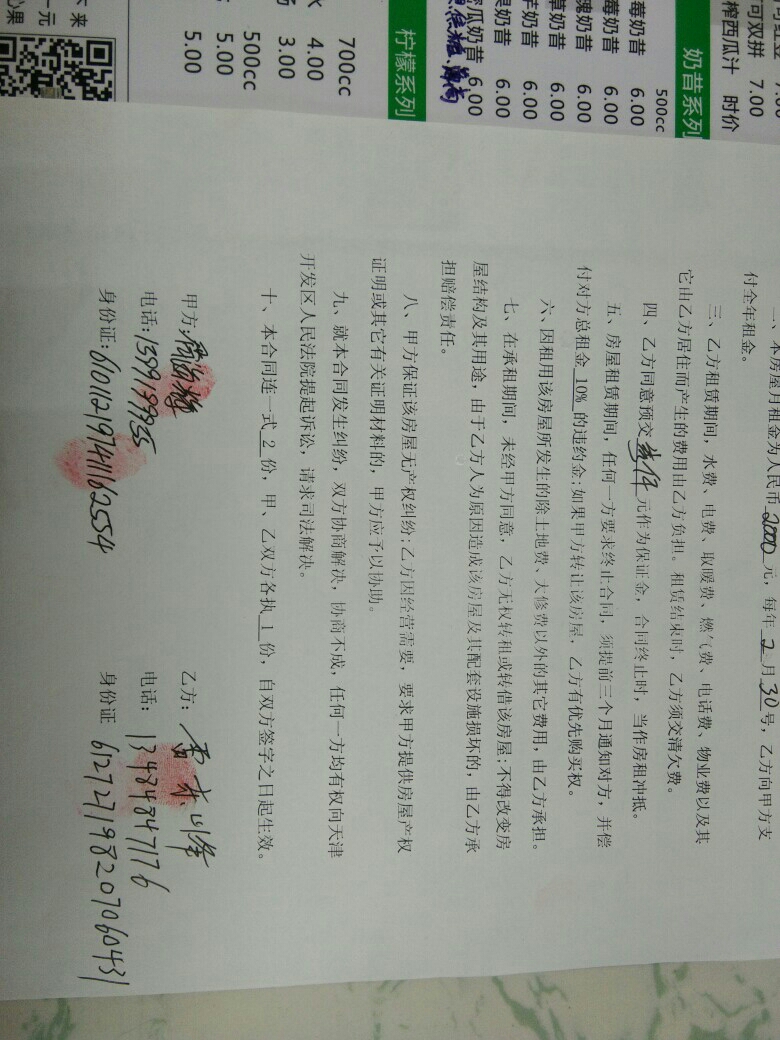 可双拼 7.00
榨西瓜汁 时价
奶昔系列
500cc
莓奶昔 6.00
莓奶昔 6.00
奶昔 6.00
草奶昔 6.00
芋奶昔 6.00
果奶昔 6.00
瓜奶昔 6.00
柠檬系列
700cc
4.00
3.00
500cc
5.00
5.00
本房屋月租金为人民币 2000 元，每年 2 月 30 号，乙方向甲方支
付全年租金。
三、乙方租赁期间，水费、电费、取暖费、燃气费、电话费、物业费以及其
它由乙方居住而产生的费用由乙方负担。租赁结束时，乙方须交清欠费。
四、乙方同意预交 元作为保证金，合同终止时，当作房租冲抵。
五、房屋租赁期间，任何一方要求终止合同，须提前三个月通知对方，并偿
付对方总租金 10% 的违约金;如果甲方转让该房屋，乙方有优先购买权。
六、因租用该房屋所发生的除土地费、大修费以外的其它费用，由乙方承担。
七、在承租期间，未经甲方同意，乙方无权转租或转借该房屋;不得改变房
屋结构及其用途，由于乙方人为原因造成该房屋及其配套设施损坏的，由乙方承
担赔偿责任。
八、甲方保证该房屋无产权纠纷;乙方因经营需要，要求甲方提供房屋产权
证明或其它有关证明材料的，甲方应予以协助。
九、就本合同发生纠纷，双方协商解决，协商不成，任何一方均有权向天津
开发区人民法院提起诉讼，请求司法解决。
十、本合同连一式 2 份，甲、乙双方各执 1 份，自双方签字之日起生效。
甲方: 乙方:
电话: 电话: 13484847176
身份证: 610112197411162554 身份证 612727198207060431